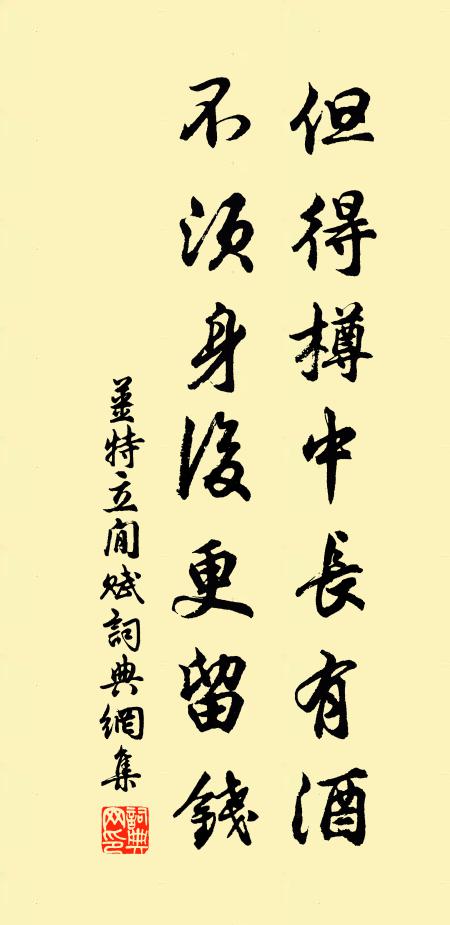 但得樽中長有酒
不須身後更留錢
姜特立閒賦詞典網集
詞典網印